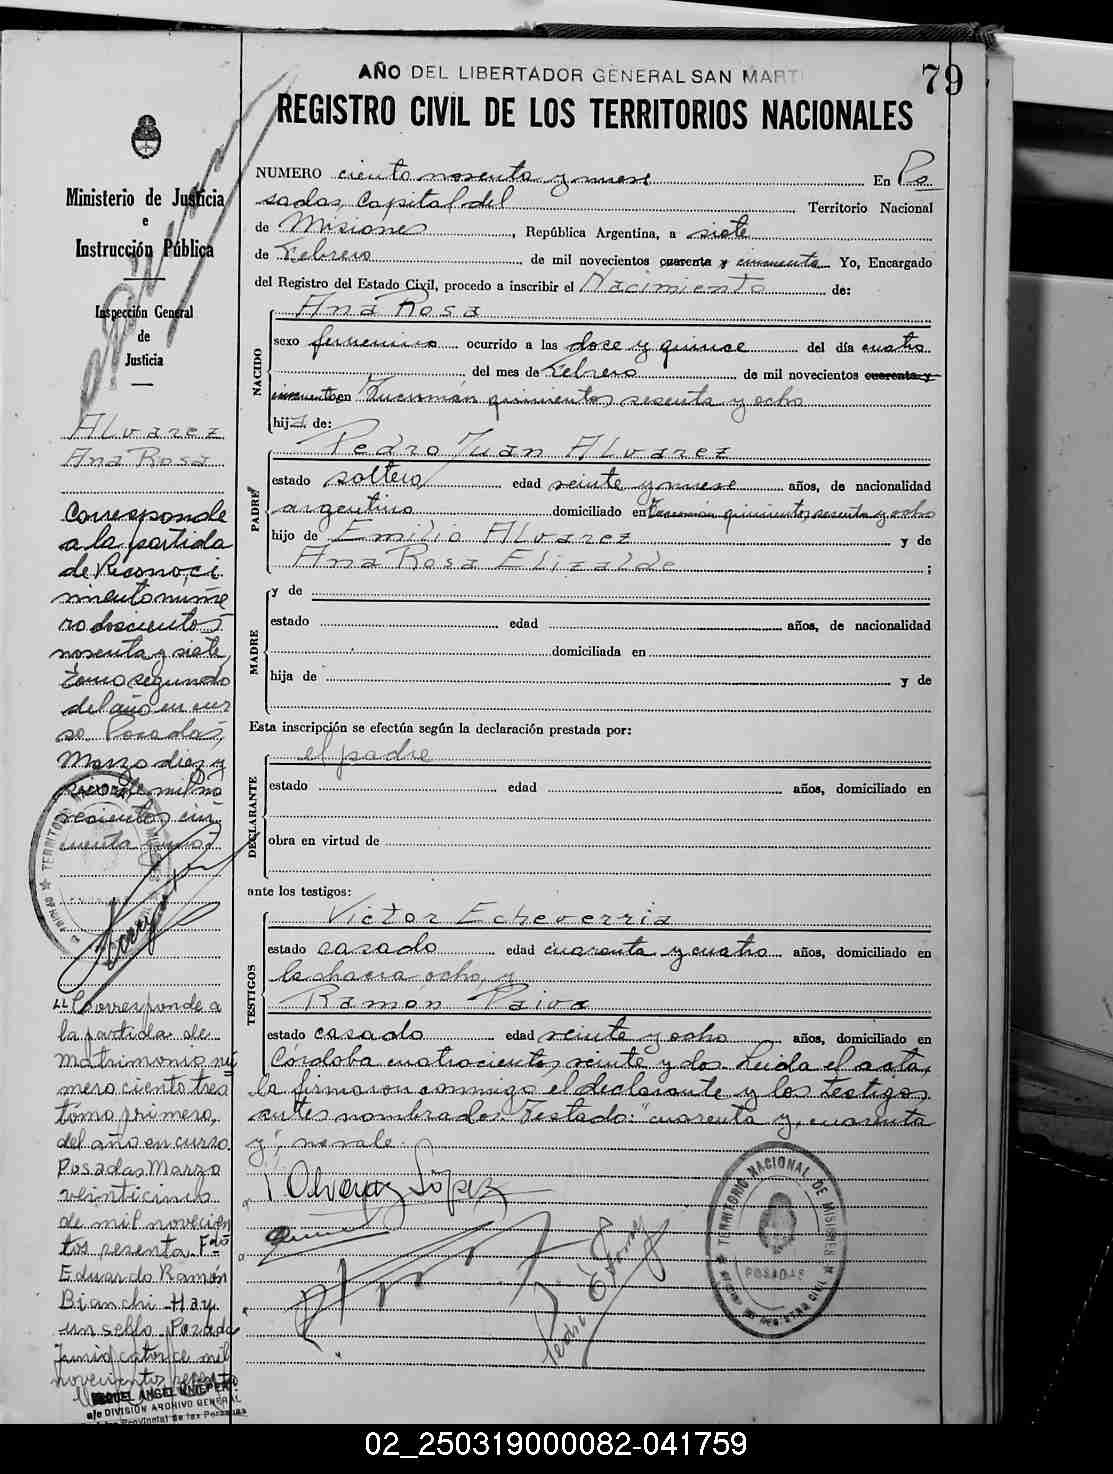 79
AÑO DEL LIBERTADOR GENERAL SAN MARTI
REGISTRO CIVIL DE LOS TERRITORIOS NACIONALES
Ministerio de Justicia
e
Instrucción Pública
Inspección General
de
Justicia
Alvarez
Ana Rosa
Corresponde
a la partida
de Reconoci
miento núme
ro doscientos
noventa y siete,
tomo segundo
del año en cur
so. Posadas,
Marzo diez y
de mil no
vecientos cin
cuenta
"Corresponde a
la partida de
Matrimonio nú
mero ciento tres
tomo primero,
del año en curso.
Posadas Marzo
veinticinco
de mil novecien
tos sesenta. Fdo
Eduardo Ramón
Bianchi - Hay
un sello. Posadas
Junio catorce mil
novecientos sesenta
MIGUEL ANGEL
a/c DIVISION ARCHIVO GENERAL
Provincial de las Personas
NUMERO ciento noventa y nueve En Po
sadas, Capital del Territorio Nacional
de Misiones, República Argentina, a siete
de Febrero de mil novecientos cuarenta y cincuenta Yo, Encargado
del Registro del Estado Civil, procedo a inscribir el Nacimiento de:
NACIDO
Ana Rosa
sexo femenino ocurrido a las doce y quince del día cuatro
del mes de Febrero de mil novecientos cuarenta y
cincuenta en Tucumán quinientos sesenta y ocho
hija de:
PADRE
Pedro Juan Alvarez
estado soltero edad veinte y nueve años, de nacionalidad
argentino domiciliado en Tucumán quinientos sesenta y ocho
hijo de Emilio Alvarez y de
Ana Rosa Elizalde ;
MADRE
y de
estado edad años, de nacionalidad
domiciliada en
hija de y de
Esta inscripción se efectúa según la declaración prestada por:
DECLARANTE
el padre
estado edad años, domiciliado en
obra en virtud de
ante los testigos:
TESTIGOS
Victor Echeverria
estado casado edad cuarenta y cuatro años, domiciliado en
la chacra ocho, y
Ramón Paiva
estado casado edad veinte y ocho años, domiciliado en
Córdoba cuatrocientos veinte y dos. Leida el acta,
la firmaron conmigo el declarante y los testigos
antes nombrados. Testado: "cuarenta y, cuarenta
y", no vale.
TERRITORIO NACIONAL DE MISIONES
POSADAS
REGISTRO CIVIL
02_250319000082-041759